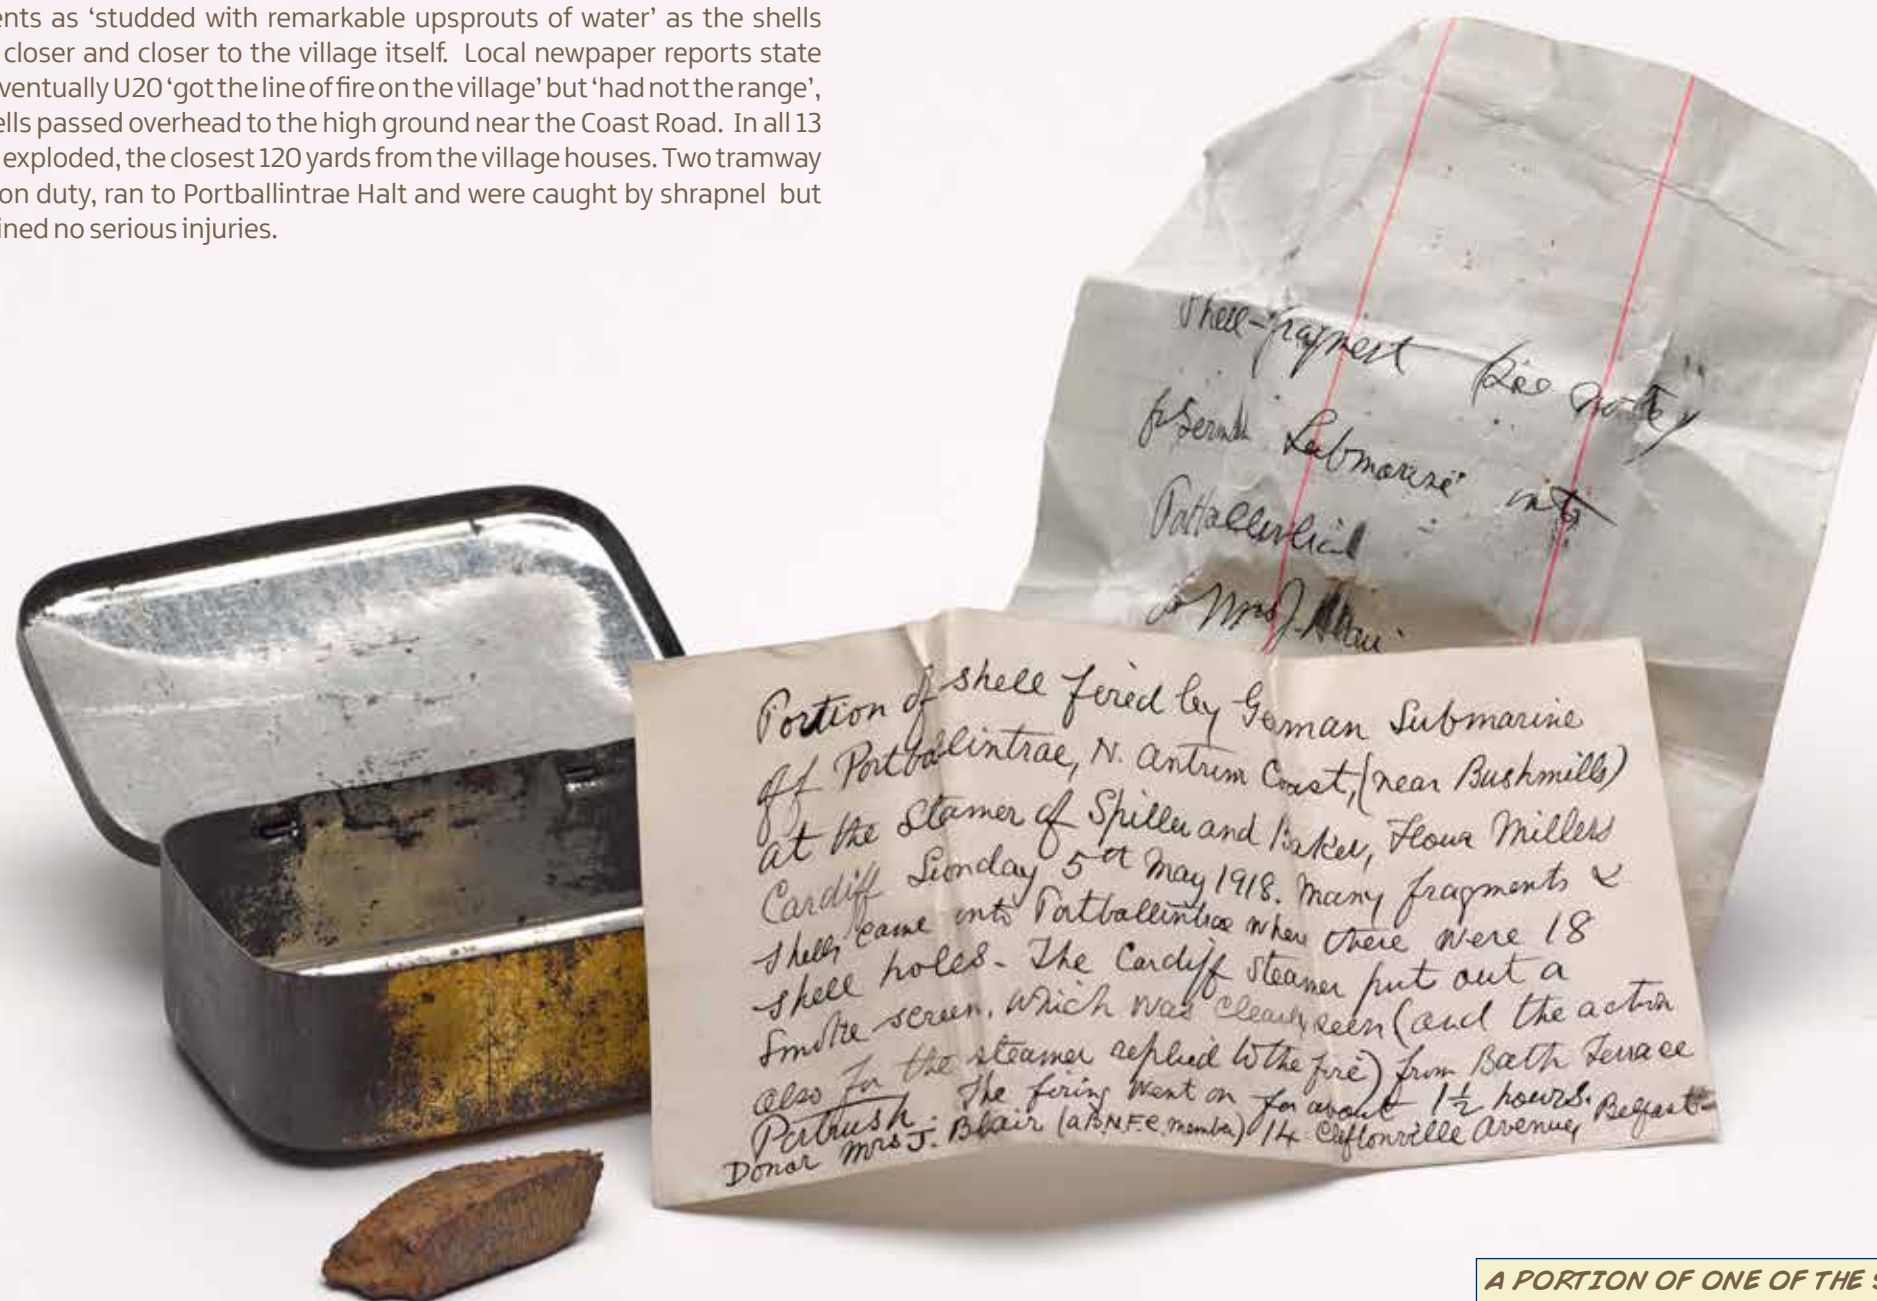 ents as ‘studded with remarkable upsprouts of water’ as the shells
closer and closer to the village itself. Local newpaper reports state
ventually U20 ‘got the line of fire on the village’ but ‘had not the range’,
ells passed overhead to the high ground near the Coast Road. In all 13
exploded, the closest 120 yards from the village houses. Two tramway
on duty, ran to Portballintrae Halt and were caught by shrapnel but
ined no serious injuries.
Shell-fragment (see note)
Submarine into
Mrs J. Blair
Portion of shell fired by German Submarine
off Portballintrae, N. Antrim Coast, (near Bushmills)
at the Steamer of Spiller and Baker, Flour Millers
Cardiff Sunday 5th May 1918. Many fragments &
shells came into Portballintrae where there were 18
shell holes - The Cardiff Steamer put out a
smoke screen, which was clearly seen (and the action
also for the steamer replied to the fire) from Bath Terrace
Portrush. The firing went on for about 1½ hours.
Donor Mrs J. Blair (a B.N.F.C. member) 14 Cliftonville Avenue, Belfast
A PORTION OF ONE OF THE